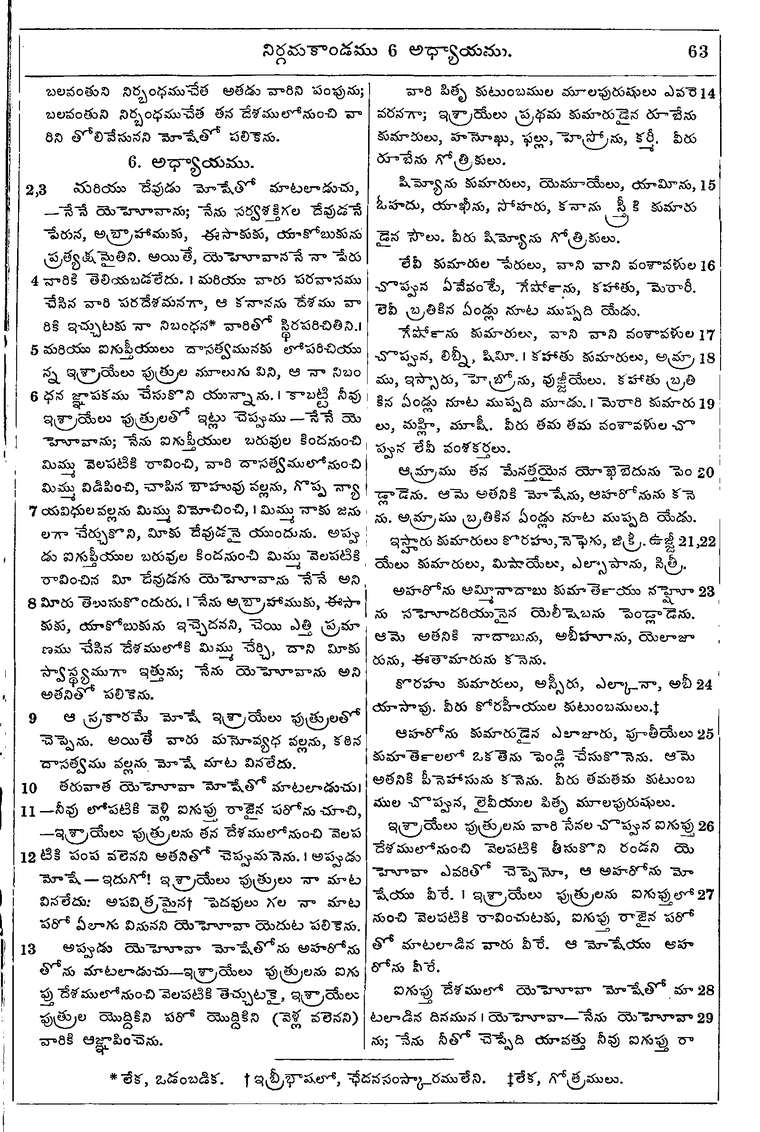 నిర్గమకాండము 6 అధ్యాయము. 63
బలవంతుని నిర్బంధముచేత అతడు వారిని పంపును;
బలవంతుని నిర్బంధముచేత తన దేశములోనుంచి వా
రిని తోలివేసునని మోషేతో పలికెను.
6. అధ్యాయము.
2,3 మరియు దేవుడు మోషేతో మాటలాడుచు,
—నేనే యెహోవాను; నేను సర్వశక్తిగల దేవుడనే
పేరున, అబ్రాహాముకు, ఈసాకుకు, యాకోబుకును
ప్రత్యక్షమైతిని. అయితే, యెహోవాననే నా పేరు
4 వారికి తెలియబడలేదు. । మరియు వారు పరవాసము
చేసిన వారి పరదేశమనగా, ఆ కనానను దేశము వా
రికి ఇచ్చుటకు నా నిబంధన* వారితో స్థిరపరిచితిని.।
5 మరియు ఐగుప్తీయులు దాసత్వమునకు లోపరిచియు
న్న ఇశ్రాయేలు పుత్రుల మూలుగు విని, ఆ నా నిబం
6 ధన జ్ఞాపకము చేసుకొని యున్నాను. । కాబట్టి నీవు
ఇశ్రాయేలు పుత్రులతో ఇట్లు చెప్పుము — నేనే యె
హోవాను; నేను ఐగుప్తీయుల బరువుల కిందనుంచి
మిమ్ము వెలపటికి రావించి, వారి దాసత్వములోనుంచి
మిమ్ము విడిపించి, చాపిన బాహువు వల్లను, గొప్ప న్యా
7 యవిధులవల్లను మిమ్ము విమోచించి, । మిమ్ము నాకు జను
లగా చేర్చుకొని, మీకు దేవుడనై యుందును. అప్పు
డు ఐగుప్తీయుల బరువుల కిందనుంచి మిమ్ము వెలపటికి
రావించిన మీ దేవుడగు యెహోవాను నేనే అని
8 మీరు తెలుసుకొందురు. । నేను అబ్రాహాముకు, ఈసా
కుకు, యాకోబుకును ఇచ్చెదనని, చెయి ఎత్తి ప్రమా
ణము చేసిన దేశములోకి మిమ్ము చేర్చి, దాని మీకు
స్వాస్థ్యముగా ఇత్తును; నేను యెహోవాను అని
అతనితో పలికెను.
9 ఆ ప్రకారమే మోషే ఇశ్రాయేలు పుత్రులతో
చెప్పెను. అయితే వారు మనోవ్యధ వల్లను, కఠిన
దాసత్వము వల్లను మోషే మాట వినలేదు.
10 తరువాత యెహోవా మోషేతో మాటలాడుచు।
11 —నీవు లోపటికి వెళ్లి ఐగుప్తు రాజైన పరోను చూచి,
—ఇశ్రాయేలు పుత్రులను తన దేశములోనుంచి వెలప
12 టికి పంప వలెనని అతనితో చెప్పుమనెను. । అప్పుడు
మోషే — ఇదుగో! ఇశ్రాయేలు పుత్రులు నా మాట
వినలేదు: అపవిత్రమైన† పెదవులు గల నా మాట
పరో ఏలాగు వినునని యెహోవా యెదుట పలికెను.
13 అప్పుడు యెహోవా మోషేతోను అహరోను
తోను మాటలాడుచు—ఇశ్రాయేలు పుత్రులను ఐగు
ప్తు దేశములోనుంచి వెలపటికి తెచ్చుటకై, ఇశ్రాయేలు
పుత్రుల యొద్దికిని పరో యొద్దికిని (వెళ్ల వలెనని)
వారికి ఆజ్ఞాపించెను.
వారి పితృ కుటుంబముల మూలపురుషులు ఎవరె 14
వరనగా; ఇశ్రాయేలు ప్రథమ కుమారుడైన రూబేను
కుమారులు, హనోఖు, ఫల్లు, హెస్రోను, కర్మీ. వీరు
రూబేను గోత్రికులు.
షిమ్యోను కుమారులు, యెమూయేలు, యామీను, 15
ఓహదు, యాఖీను, సోహరు, కనాను స్త్రీకి కుమారు
డైన సౌలు. వీరు షిమ్యోను గోత్రికులు.
లేవీ కుమారుల పేరులు, వాని వాని వంశావళుల 16
చొప్పున ఏవేవంటే, గేర్షోను, కహాతు, మెరారీ.
లెవీ బ్రతికిన ఏండ్లు నూట ముప్పది యేడు.
గేర్షోను కుమారులు, వాని వాని వంశావళుల 17
చొప్పున, లిబ్నీ, షిమీ. । కహాతు కుమారులు, అమ్రా 18
ము, ఇస్సారు, హెబ్రోను, వుజ్జీయేలు. కహాతు బ్రతి
కిన ఏండ్లు నూట ముప్పది మూడు. । మెరారి కుమారు 19
లు, మహ్లి, మూషీ. వీరు తమ తమ వంశావళుల చొ
ప్పున లేవీ వంశకర్తలు.
అమ్రాము తన మేనత్తయైన యోఖెబెదును పెం 20
డ్లాడెను. ఆమె అతనికి మోషేను, ఆహరోనును కనె
ను. అమ్రాము బ్రతికిన ఏండ్లు నూట ముప్పది యేడు.
ఇస్హారు కుమారులు కొరహు, నెఫెగు, జిక్రి. ఉజ్జీ 21,22
యేలు కుమారులు, మిషాయేలు, ఎల్సాఫాను, సిత్రీ.
అహరోను అమ్మీనాదాబు కుమార్తెయు నహ్షో 23
ను సహోదరియునైన యెలీషెబను పెండ్లాడెను.
ఆమె అతనికి నాదాబును, అబీహూను, యెలాజా
రును, ఈతామారును కనెను.
కొరహు కుమారులు, అస్సీరు, ఎల్కానా, అబీ 24
యాసావు. వీరు కోరహీయుల కుటుంబములు.‡
ఆహరోను కుమారుడైన ఎలాజారు, పూతీయేలు 25
కుమార్తెలలో ఒకతెను పెండ్లి చేసుకొనెను. ఆమె
అతనికి పీనెహాసును కనెను. వీరు తమతమ కుటుంబ
ముల చొప్పున, లైవీయుల పితృ మూలపురుషులు.
ఇశ్రాయేలు పుత్రులను వారి సేనల చొప్పున ఐగుప్తు 26
దేశములోనుంచి వెలపటికి తీసుకొని రండని యె
హోవా ఎవరితో చెప్పెనో, ఆ అహరోను మో
షేయు వీరే. । ఇశ్రాయేలు పుత్రులను ఐగుప్తులో 27
నుంచి వెలపటికి రావించుటకు, ఐగుప్తు రాజైన పరో
తో మాటలాడిన వారు వీరే. ఆ మోషేయు అహ
రోను వీరే.
ఐగుప్తు దేశములో యెహోవా మోషేతో మా 28
టలాడిన దినమున । యెహోవా—నేను యెహోవా 29
ను; నేను నీతో చెప్పేది యావత్తు నీవు ఐగుప్తు రా
* లేక, ఒడంబడిక. † ఇబ్రీభాషలో, ఛేదనసంస్కారములేని. ‡లేక, గోత్రములు.